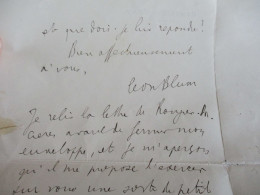 et que dois-je lui répondre ?
Bien affectueusement
à vous,
Léon Blum
Je relis la lettre de
avant de fermer mon
enveloppe, et je m'aperçois
qu'il me propose d'exercer
sur vous une sorte de petit